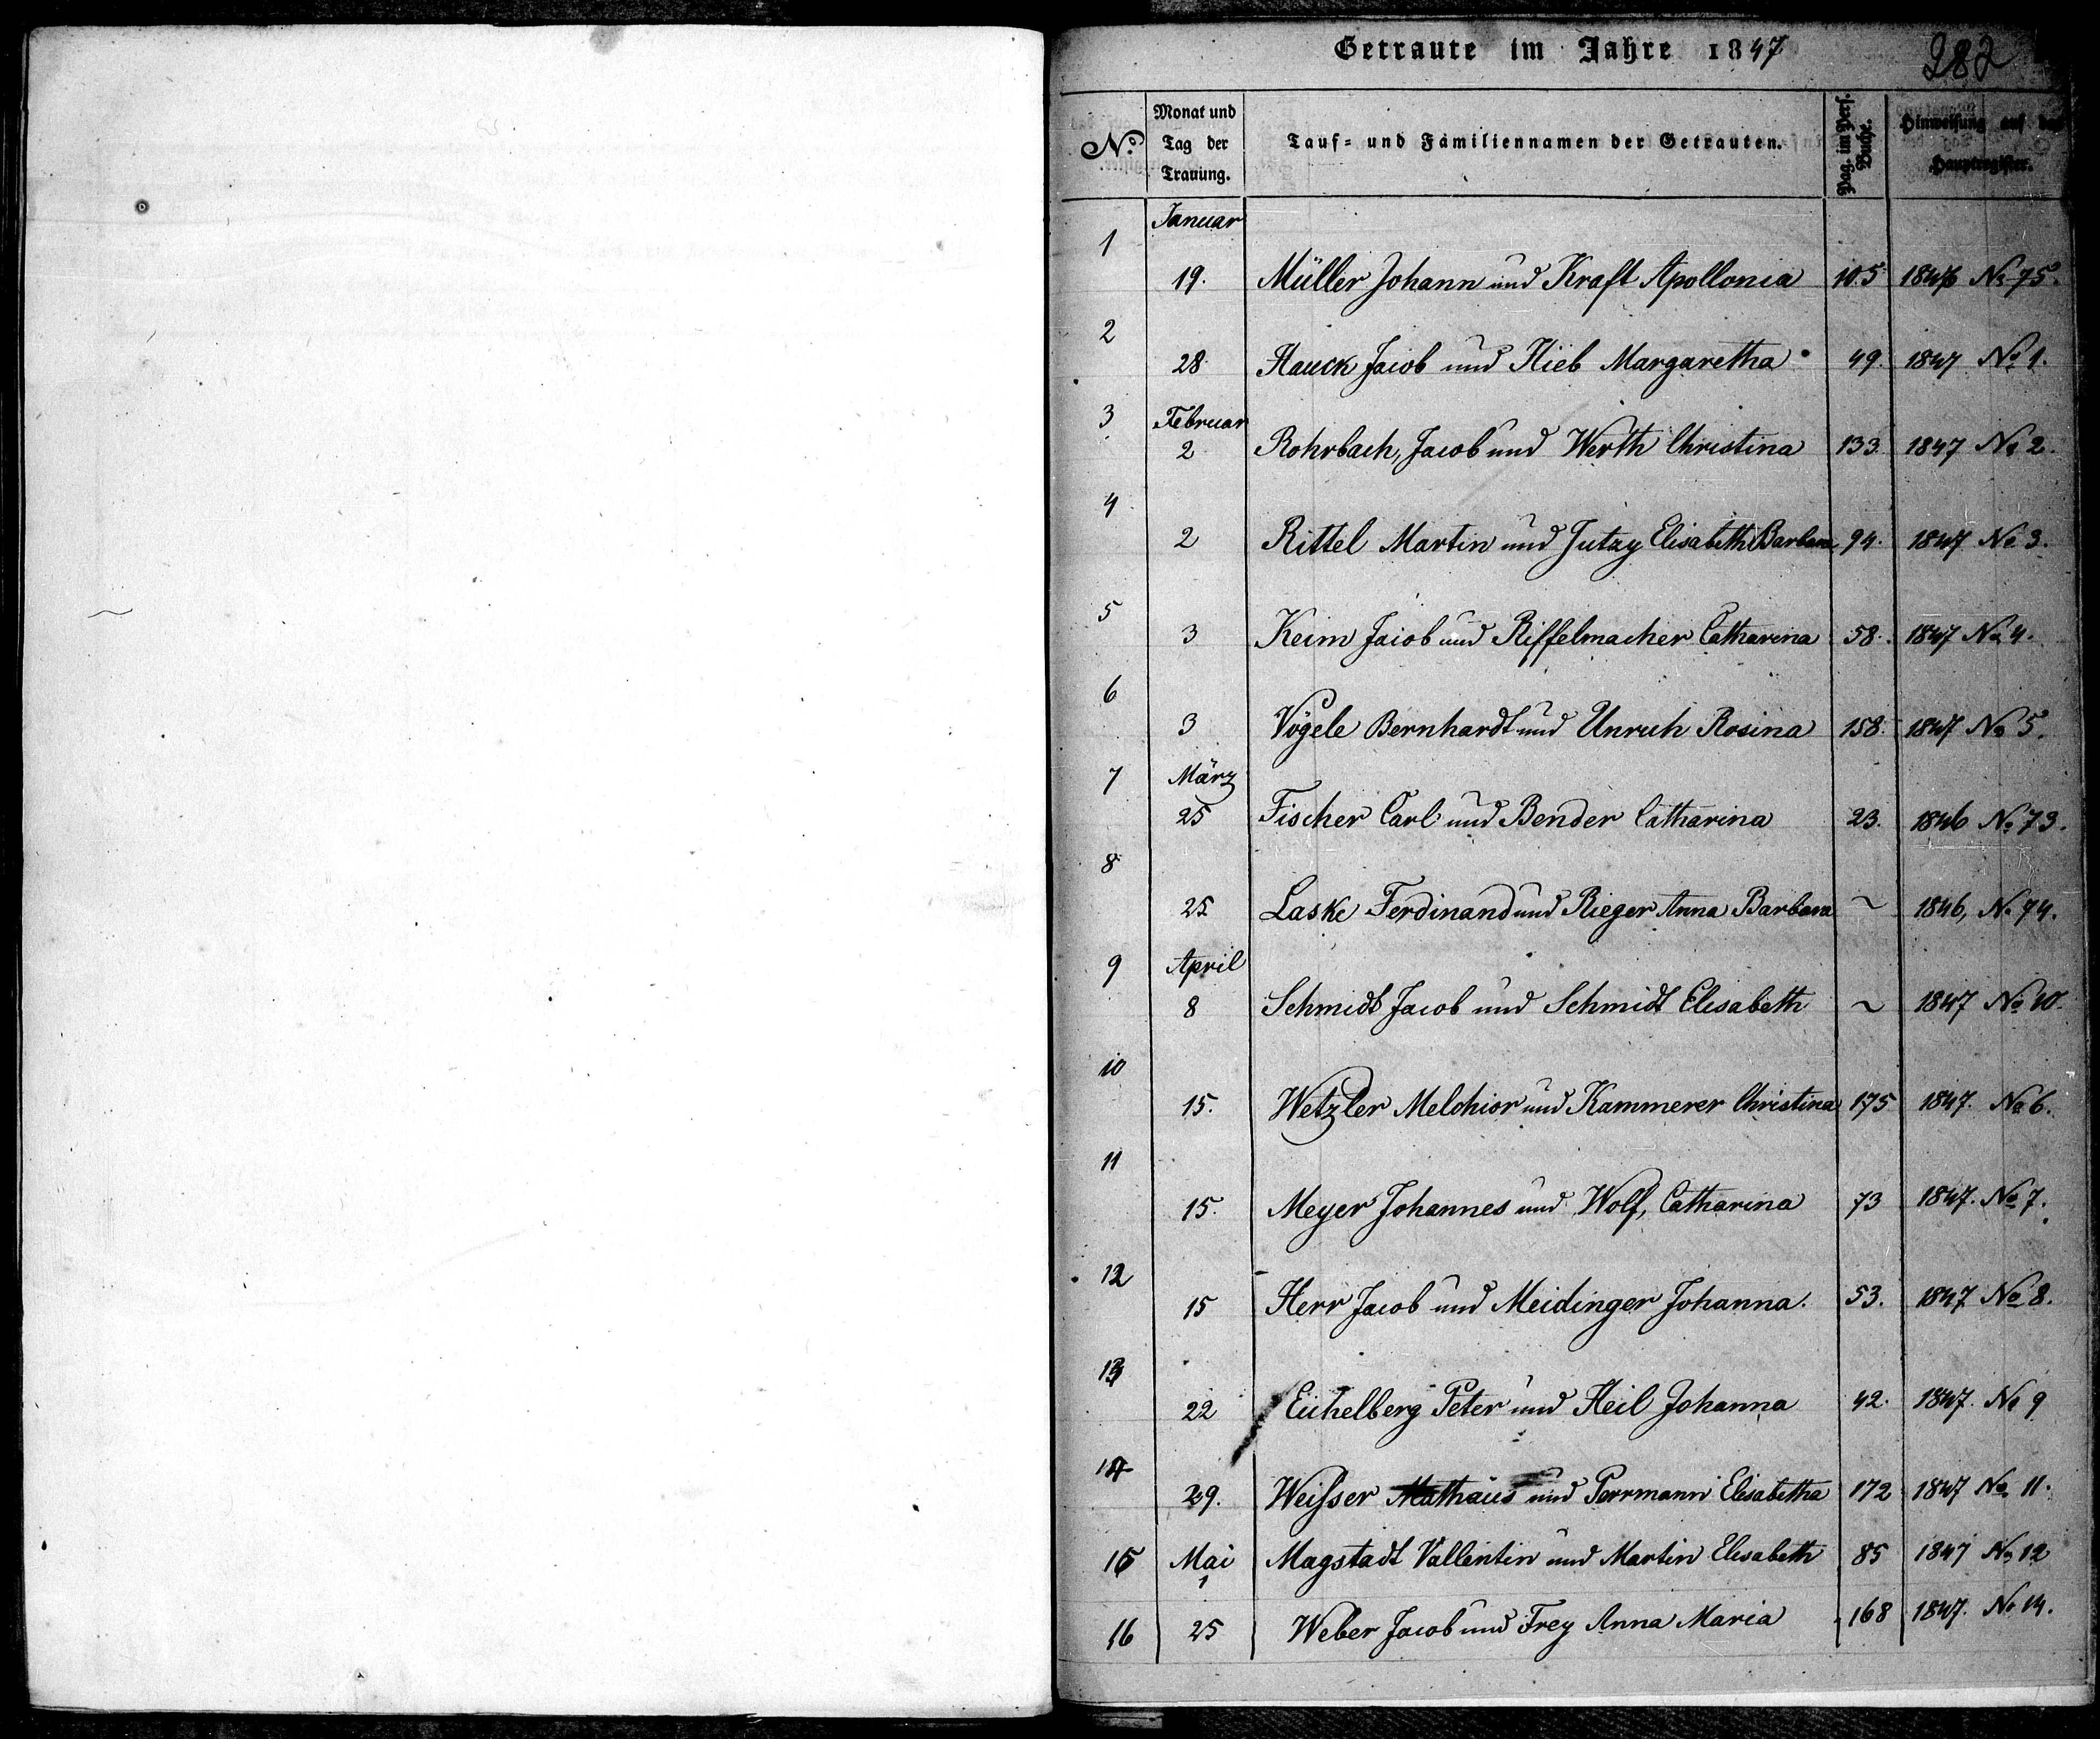 Getraute im Jahre 1847
282
Nº.
Monat und Tag der Trauung.
Tauf- und Familiennamen der Getrauten.
Pag. im Pers. Buche.
Hinweisung auf das Hauptregister.
1 Januar
19. Müller Johann und Kraft Apollonia 105 1846 No 75.
2
28. Hauck Jacob und Hieb Margaretha 49. 1847 No 1.
3 Februar
2 Rohrbach, Jacob und Werth Christina 133. 1847 No 2.
4
2 Rittel Martin und Jutzy Elisabeth Barbara 94. 1847 No 3.
5
3 Keim Jacob und Riffelmacher Catharina 58. 1847 No 4.
6
3 Vögele Bernhardt und Unruh Rosina 158. 1847 No 5.
7 März
25 Fischer Carl und Bender Catharina 23. 1846 No 73.
8
25 Laske Ferdinand und Rieger Anna Barbara ~ 1846, No 74.
9 April
8 Schmidt Jacob und Schmidt Elisabeth ~ 1847 No 10.
10
15. Wetzler Melchior und Kammerer Christina 175 1847. No 6.
11
15. Meyer Johannes und Wolf, Catharina 73 1847. No 7.
12
15 Herr Jacob und Meidinger Johanna. 53. 1847 No 8.
13
22 Eichelberg Peter und Heil Johanna 42. 1847. No 9
14
29. Weißer Mathäus und Perrmann Elisabetha 172 1847 No 11.
15 Mai 1 Magstadt Vallentin und Martin Elisabeth 85 1847 No 12
16 25 Weber Jacob und Frey Anna Maria 168 1847. No 14.